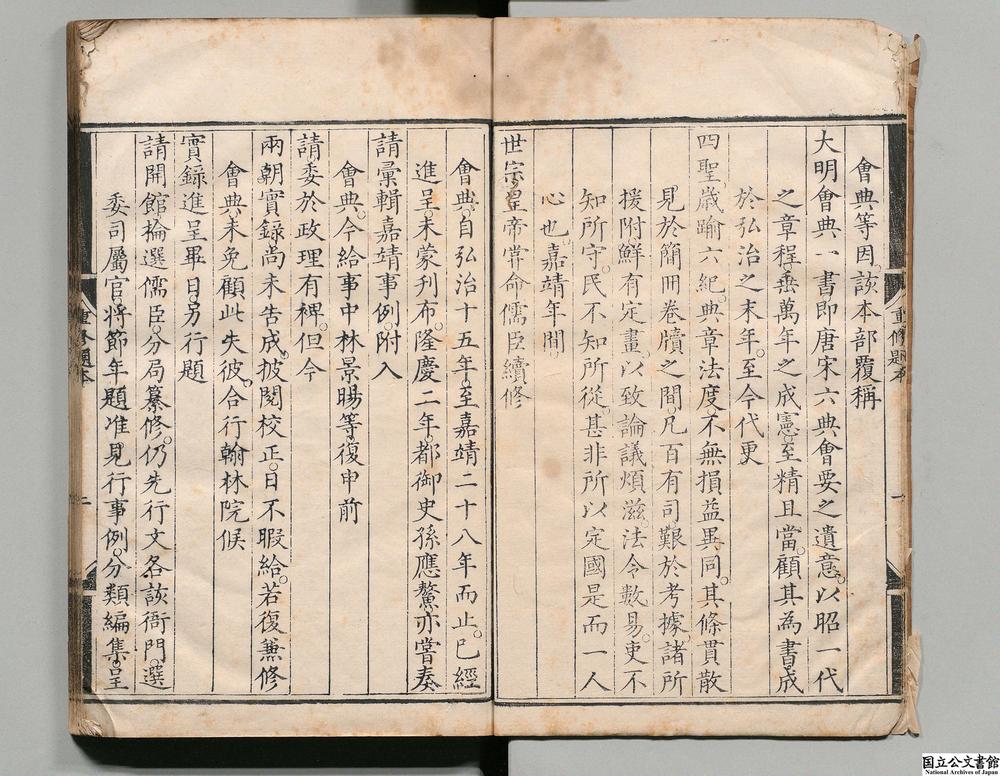 會典等因。該本部覆稱
大明會典一書即唐宋六典會要之遺意。以昭一代
之章程。垂萬年之成憲。至精且當。顧其為書。成
於弘治之末年。至今代更
四聖。歲踰六紀。典章法度。不無損益異同。其條貫散
見於簡冊卷牘之間。凡百有司。艱於考據。諸所
援附。鮮有定畫。以致論議煩滋。法令數易。吏不
知所守。民不知所從。甚非所以定國是而一人
心也。嘉靖年間。
世宗皇帝常命儒臣續修
重修題本
一
會典。自弘治十五年。至嘉靖二十八年而止。已經
進呈。未蒙刊布。隆慶二年。都御史孫應鰲亦嘗奏
請彙輯嘉靖事例。附入
會典。今給事中林景暘等。復申前
請。委於政理有裨。但今
兩朝實錄尚未告成。披閱校正。日不暇給。若復兼修
會典。未免顧此失彼。合行翰林院候
實錄進呈畢日。另行題
請開館。掄選儒臣。分局纂修。仍先行文各該衙門。選
委司屬官。將節年題准見行事例。分類編集。呈
重修題本
二
国立公文書館
National Archives of Japan